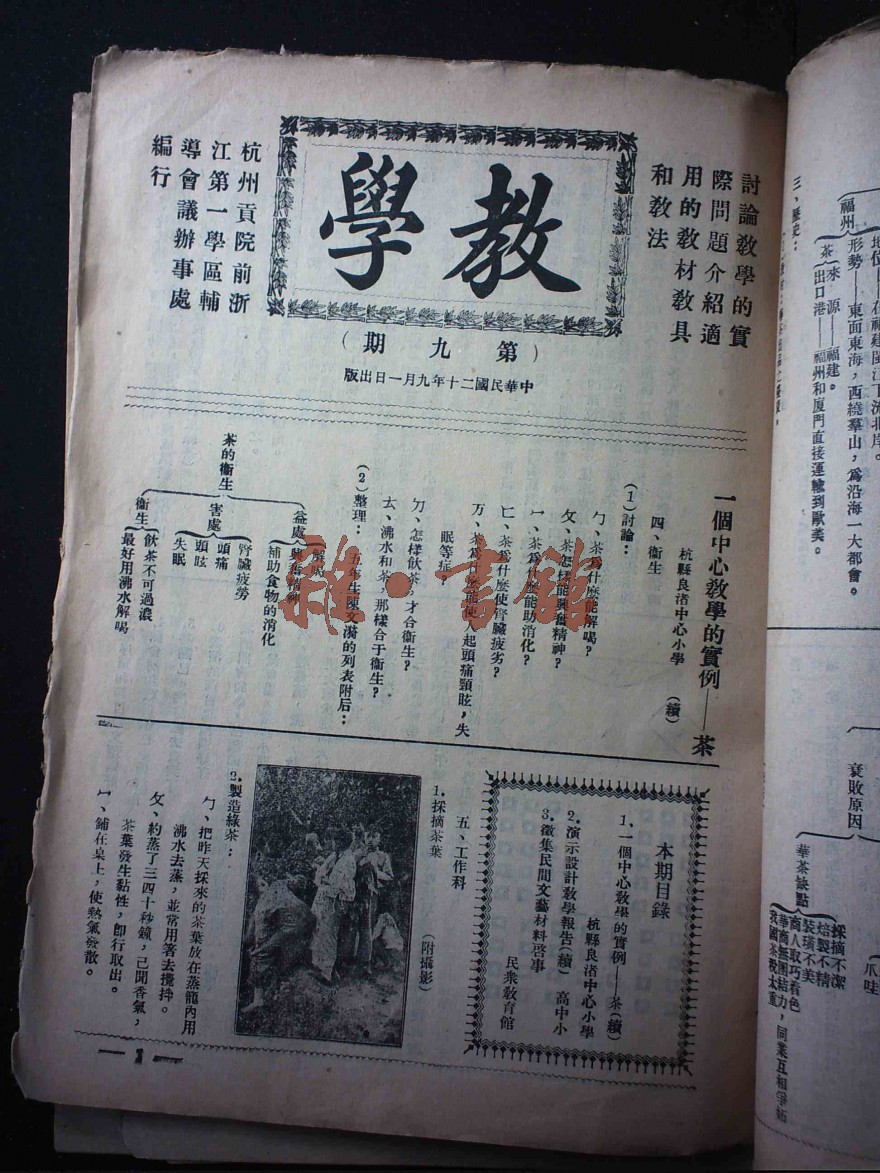 教學
(第九期)
中華民國二十年九月一日出版
討論敎學的實
際問題介紹適
用的敎材敎具
和敎法
杭州貢院前浙
江第一學區輔
導會議辦事處
編行
一個中心敎學的實例——茶
杭縣良渚中心小學 (續)
四、衞生
(1)討論：
ㄅ、茶爲什麼能解喝？
ㄆ、茶怎樣能興奮精神？
ㄇ、茶爲什麼能助消化？
ㄈ、茶爲什麼使腎臟疲劣？
万、茶爲什麼能使人起頭痛頸眩，失
眠等症？
ㄉ、怎樣飲茶，才合衞生？
ㄊ、沸水和茶，那樣合于衞生？
(2)整理：五年生陳文漪的列表附后：
茶的衞生
益處
解喝
興奮精神
補助食物的消化
害處
腎臟疲勞
頭痛
頭眩
失眠
衞生
飲茶不可過濃
最好用沸水解喝
本期目錄
1.一個中心敎學的實例——茶(續)
杭縣良渚中心小學
2.演示設計敎學報告(續) 高中小
3.徵集民間文藝材料啓事
民衆敎育館
五、工作科
1.採摘茶葉
(附攝影)
2.製造綠茶：
ㄅ、把昨天採來的茶葉放在蒸籠內用
沸水去蒸，並常用箸去攪拌。
ㄆ、約蒸了三四十秒鐘，已聞香氣，
茶葉發生黏性，卽行取出。
ㄇ、鋪在桌上，使熱氣發散。
— 1 —
雜·書館
三、歷史：
福州
地位——在福建閩江下流北岸。
形勢——東面東海，西繞羣山，爲沿海一大都會。
茶
來源——福建。
出口港——福州和厦門直接運輸到歐美。
衰敗原因
華茶缺點
採摘不潔
焙製不精
裝璜不美
商人取巧着色
華商無團結力，同業互相爭
我國茶稅太重
(爪哇